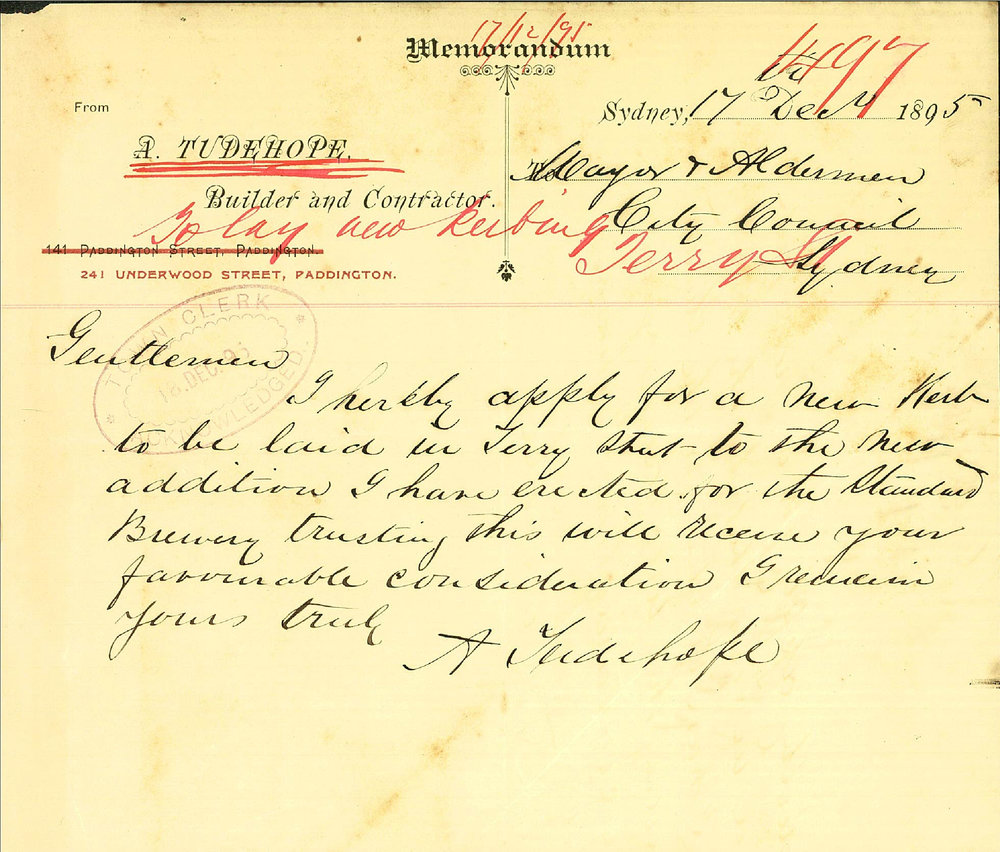 17/12/95
Memorandum
4197
From
Sydney, 17 Decr 1895
A. TUDEHOPE.
To Mayor & Aldermen
Builder and Contractor.
City Council
To lay new kerbing
Terry St
Sydney
141 PADDINGTON STREET, PADDINGTON.
241 UNDERWOOD STREET, PADDINGTON.
TOWN CLERK
18.DEC.95
ACKNOWLEDGED.
Gentlemen
I hereby apply for a new Kerb
to be laid in Terry Street to the New
addition I have erected for the Standard
Brewery trusting this will receive your
favourable consideration I remain
yours truly
A Tudehope